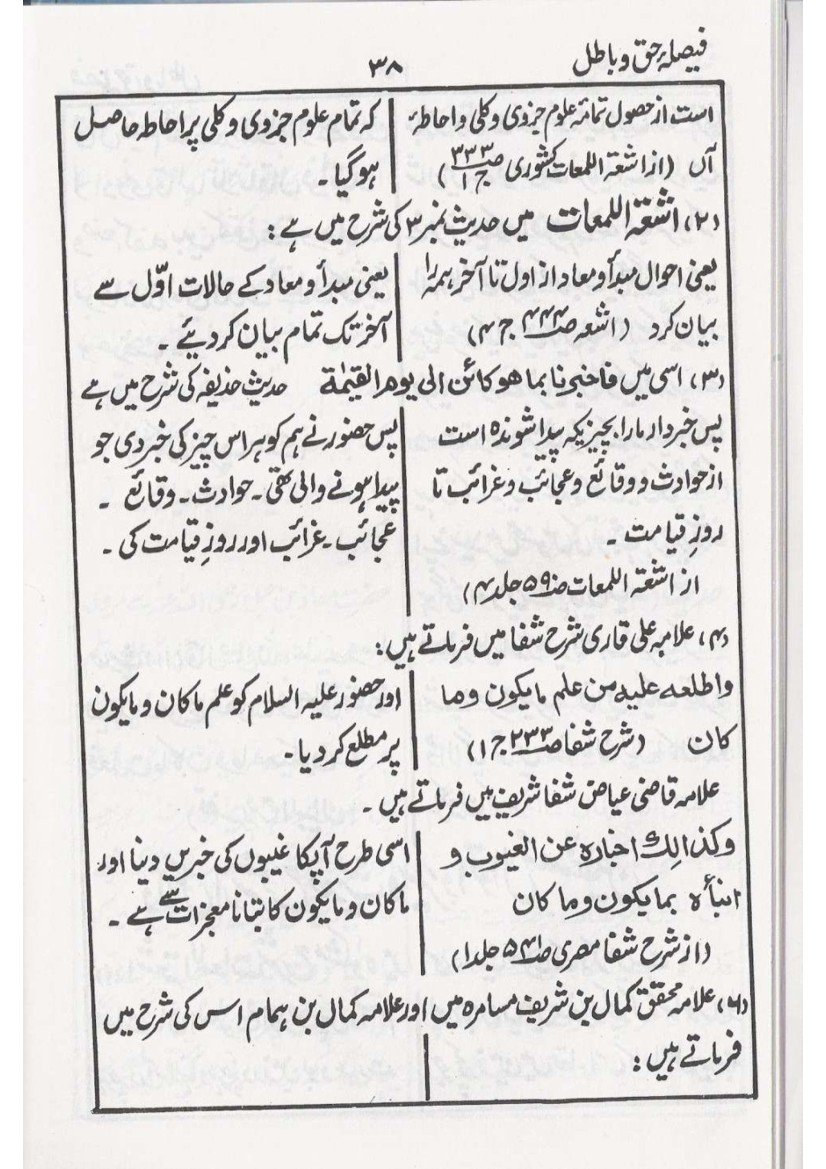 فیصلۂ حق و باطل
۳۸
است از حصول تمامۂ علوم جزوی و کلی و احاطۂ
آں (از اشعۃ اللمعات کشوری صـ۳۳۳ ج۱)
کہ تمام علوم جزوی و کلی پر احاطہ حاصل
ہو گیا۔
(۲) اشعۃ اللمعات میں حدیث نمبر ۳ کی شرح میں ہے :
یعنی احوال مبدأ و معاد از اول تا آخر ہمہ را
بیان کرد (اشعہ صـ۴۴۴ ج۴)
یعنی مبدأ و معاد کے حالات اوّل سے
آخر تک تمام بیان کر دیئے ۔
(۳) اسی میں فاخبرنا بما ھو کائن الی یوم القیٰمۃ حدیث حذیفہ کی شرح میں ہے
پس خبردار مارا بچیزیکہ پیدا شوندہ است
از حوادث و وقائع و عجائب و غرائب تا
روزِ قیامت ۔
از اشعۃ اللمعات صـ۵۹ جلد۴)
پس حضور نے ہم کو ہر اس چیز کی خبر دی جو
پیدا ہونے والی تھی ۔ حوادث ۔ وقائع ۔
عجائب ۔ غرائب اور روزِ قیامت کی ۔
(۴) علامہ علی قاری شرح شفا میں فرماتے ہیں :
واطلعہ علیہ من علم مایکون وما
کان (شرح شفا صـ۲۳۳ ج۱)
اور حضور علیہ السلام کو علم ماکان و مایکون
پر مطلع کر دیا۔
علامہ قاضی عیاض شفا شریف میں فرماتے ہیں ۔
وکذالک اخبارہ عن الغیوب و
انبأہ بمایکون وماکان
(از شرح شفا مصری صـ۵۴۱ جلد۱)
اسی طرح آپکا غیبوں کی خبریں دینا اور
ماکان و مایکون کا بتانا معجزات سے ہے ۔
(۶) علامہ محقق کمال بن شریف مسامرہ میں اور علامہ کمال بن ہمام اس کی شرح میں
فرماتے ہیں :